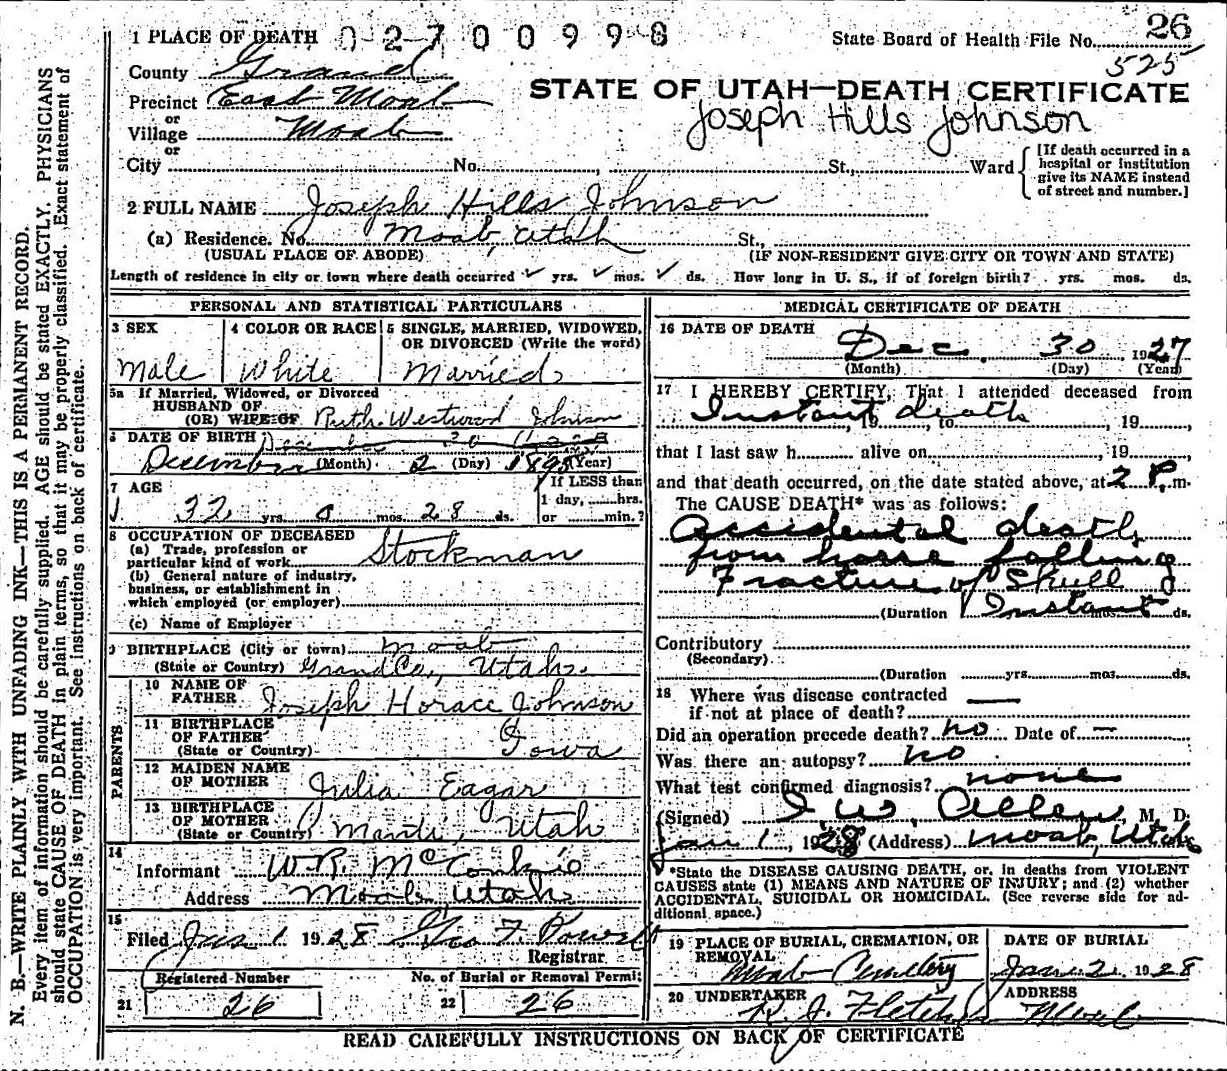 1 PLACE OF DEATH 0-2-7 0 0 9 9 8
State Board of Health File No. 26
525
County Grand
STATE OF UTAH—DEATH CERTIFICATE
Precinct East Moab
or
Joseph Hills Johnson
Village Moab
or
City No. St., Ward
[If death occurred in a hospital or institution give its NAME instead of street and number.]
2 FULL NAME Joseph Hills Johnson
(a) Residence. No. Moab, Utah St.,
(USUAL PLACE OF ABODE) (IF NON-RESIDENT GIVE CITY OR TOWN AND STATE)
Length of residence in city or town where death occurred ✓ yrs. ✓ mos. ✓ ds. How long in U. S., if of foreign birth? yrs. mos. ds.
PERSONAL AND STATISTICAL PARTICULARS
3 SEX
Male
4 COLOR OR RACE
White
5 SINGLE, MARRIED, WIDOWED, OR DIVORCED (Write the word)
Married
5a If Married, Widowed, or Divorced
HUSBAND OF
(OR) WIFE OF Ruth Westwood Johnson
6 DATE OF BIRTH December 30
December (Month) 2 (Day) 1895 (Year)
7 AGE
32 yrs. 0 mos. 28 ds.
If LESS than
1 day, hrs.
or min.?
8 OCCUPATION OF DECEASED
(a) Trade, profession or
particular kind of work Stockman
(b) General nature of industry,
business, or establishment in
which employed (or employer)
(c) Name of Employer
9 BIRTHPLACE (City or town) Moab
(State or Country) Grand Co., Utah.
PARENTS
10 NAME OF
FATHER Joseph Horace Johnson
11 BIRTHPLACE
OF FATHER
(State or Country) Iowa
12 MAIDEN NAME
OF MOTHER Julia Eagar
13 BIRTHPLACE
OF MOTHER
(State or Country) Manti, Utah
14
Informant W. R. McConkie
Address Moab, Utah
15
Filed Jan 1 1928 Geo F. Powell
Registrar
Registered Number No. of Burial or Removal Permit
21 26 22 26
MEDICAL CERTIFICATE OF DEATH
16 DATE OF DEATH
Dec. 30, 1927
(Month) (Day) (Year)
17 I HEREBY CERTIFY, That I attended deceased from
Instant death, 19 , to , 19
that I last saw h alive on , 19
and that death occurred, on the date stated above, at 2 P. m.
The CAUSE DEATH* was as follows:
Accidental death
from horse falling
Fracture of Skull
(Duration Instant ds.
Contributory
(Secondary)
(Duration yrs. mos. ds.
18 Where was disease contracted
if not at place of death? —
Did an operation precede death? no Date of —
Was there an autopsy? no
What test confirmed diagnosis? none
(Signed) I. W. Allen, M. D.
Jan 1, 1928 (Address) Moab, Utah
*State the DISEASE CAUSING DEATH, or, in deaths from VIOLENT
CAUSES state (1) MEANS AND NATURE OF INJURY; and (2) whether
ACCIDENTAL, SUICIDAL OR HOMICIDAL. (See reverse side for ad-
ditional space.)
19 PLACE OF BURIAL, CREMATION, OR
REMOVAL
Moab Cemetery
DATE OF BURIAL
Jan. 2 1928
20 UNDERTAKER
ADDRESS
Moab
READ CAREFULLY INSTRUCTIONS ON BACK OF CERTIFICATE
N. B.—WRITE PLAINLY WITH UNFADING INK—THIS IS A PERMANENT RECORD.
Every item of information should be carefully supplied. AGE should be stated EXACTLY. PHYSICIANS
should state CAUSE OF DEATH in plain terms, so that it may be properly classified. Exact statement of
OCCUPATION is very important. See instructions on back of certificate.